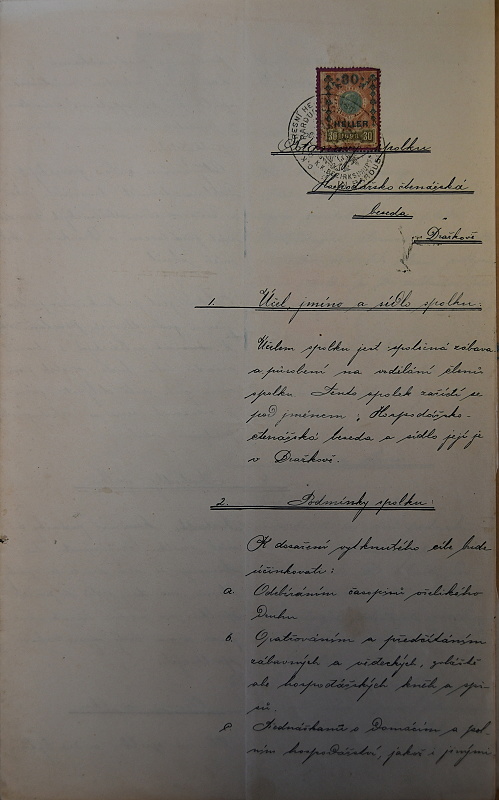 30
HELLER
30 1898 30
spolku
Hospodářsko čtenářská
beseda
v Dražkově
1. Účel, jméno a sídlo spolku:
Účelem spolku jest společná zábava
a působení na vzdělání členů
spolku. Tento spolek zařídí se
pod jménem „Hospodářsko-
čtenářská beseda a sídlo její je
v Dražkově.
2. Podmínky spolku:
K dosažení vytknutého cíle bude
účinkovati:
a. Odebíráním časopisů všelikého
druhu
b. Opatřováním a předčítáním
zábavných a vědeckých, zvláště
ale hospodářských kněh a spi-
sů.
c. Přednáškami o domácím a pol-
ním hospodářství, jakož i jinými